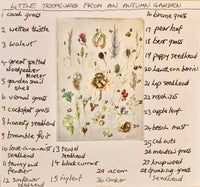 LITTLE TREASURES FROM AN AUTUMN GARDEN
1 canary grass
2 welted thistle
3 walnut
4 great spotted
woodpecker
feather
5 garden snail
shell
6 vernal grass
7 cocksfoot grass
8 honesty seedhead
9 bramble fruit
10 love-in-a-mist
seedhead
11 greater
feather
12 sunflower
seedhead
13 teasel
seedhead
14 blackcurrant
15
16 bronze grass
17 pear leaf
18 bent grass
19 poppy seedhead
20 hawthorn berries
21 hop seedhead
22
23 apple leaf
24 beech mast
25 cod oats
26 meadow grass
27 knapweed
28 quaking grass
seedhead
29 acorn
30 conker